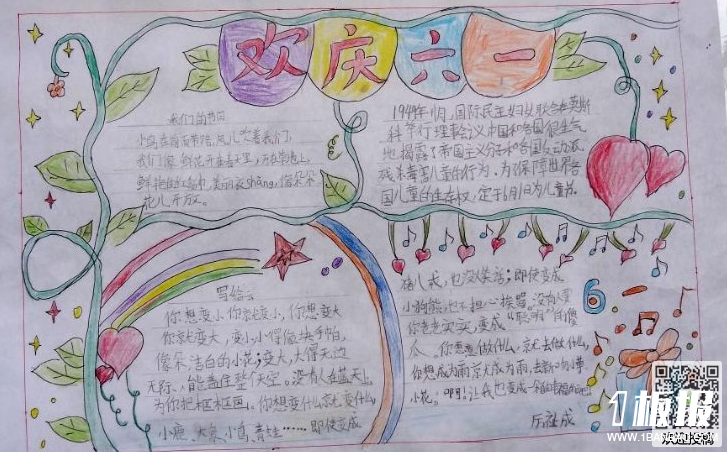 欢庆六一
我们的节日
小鸟在前面带路,风儿吹着我们,
我们像 鲜花
鲜艳的红领巾,美丽的衣shang,像朵朵
花儿开放。
1949年11月,国际民主妇女联合会在莫斯
科举行理事会议,中国和各国
地揭露了帝国主义分子和各国反动派
残杀毒害儿童的行为。为了保障世界各
国儿童的生存权,定于6月1日为儿童节
写给云
你想变小,你就变小,你想变大
你就变大,变小,小得像块手帕,
像朵洁白的小花;变大,大得无边
无际,能盖住整个天空。没有人在蓝天上
为你把框框画。你想变什么就变什么,
小鹿、大象、小鸟、青蛙……即使变成
也没人笑话;即使变成
小狗熊,也不担心挨骂,没有人要
你老老实实,变成“聪明”的傻
瓜。你想做什么,就去做什么,
你想成为雨,就成为雨,去
小花。啊!让我也变成一
6一
1板报
WWW.1BANBAO.COM
欢迎投稿